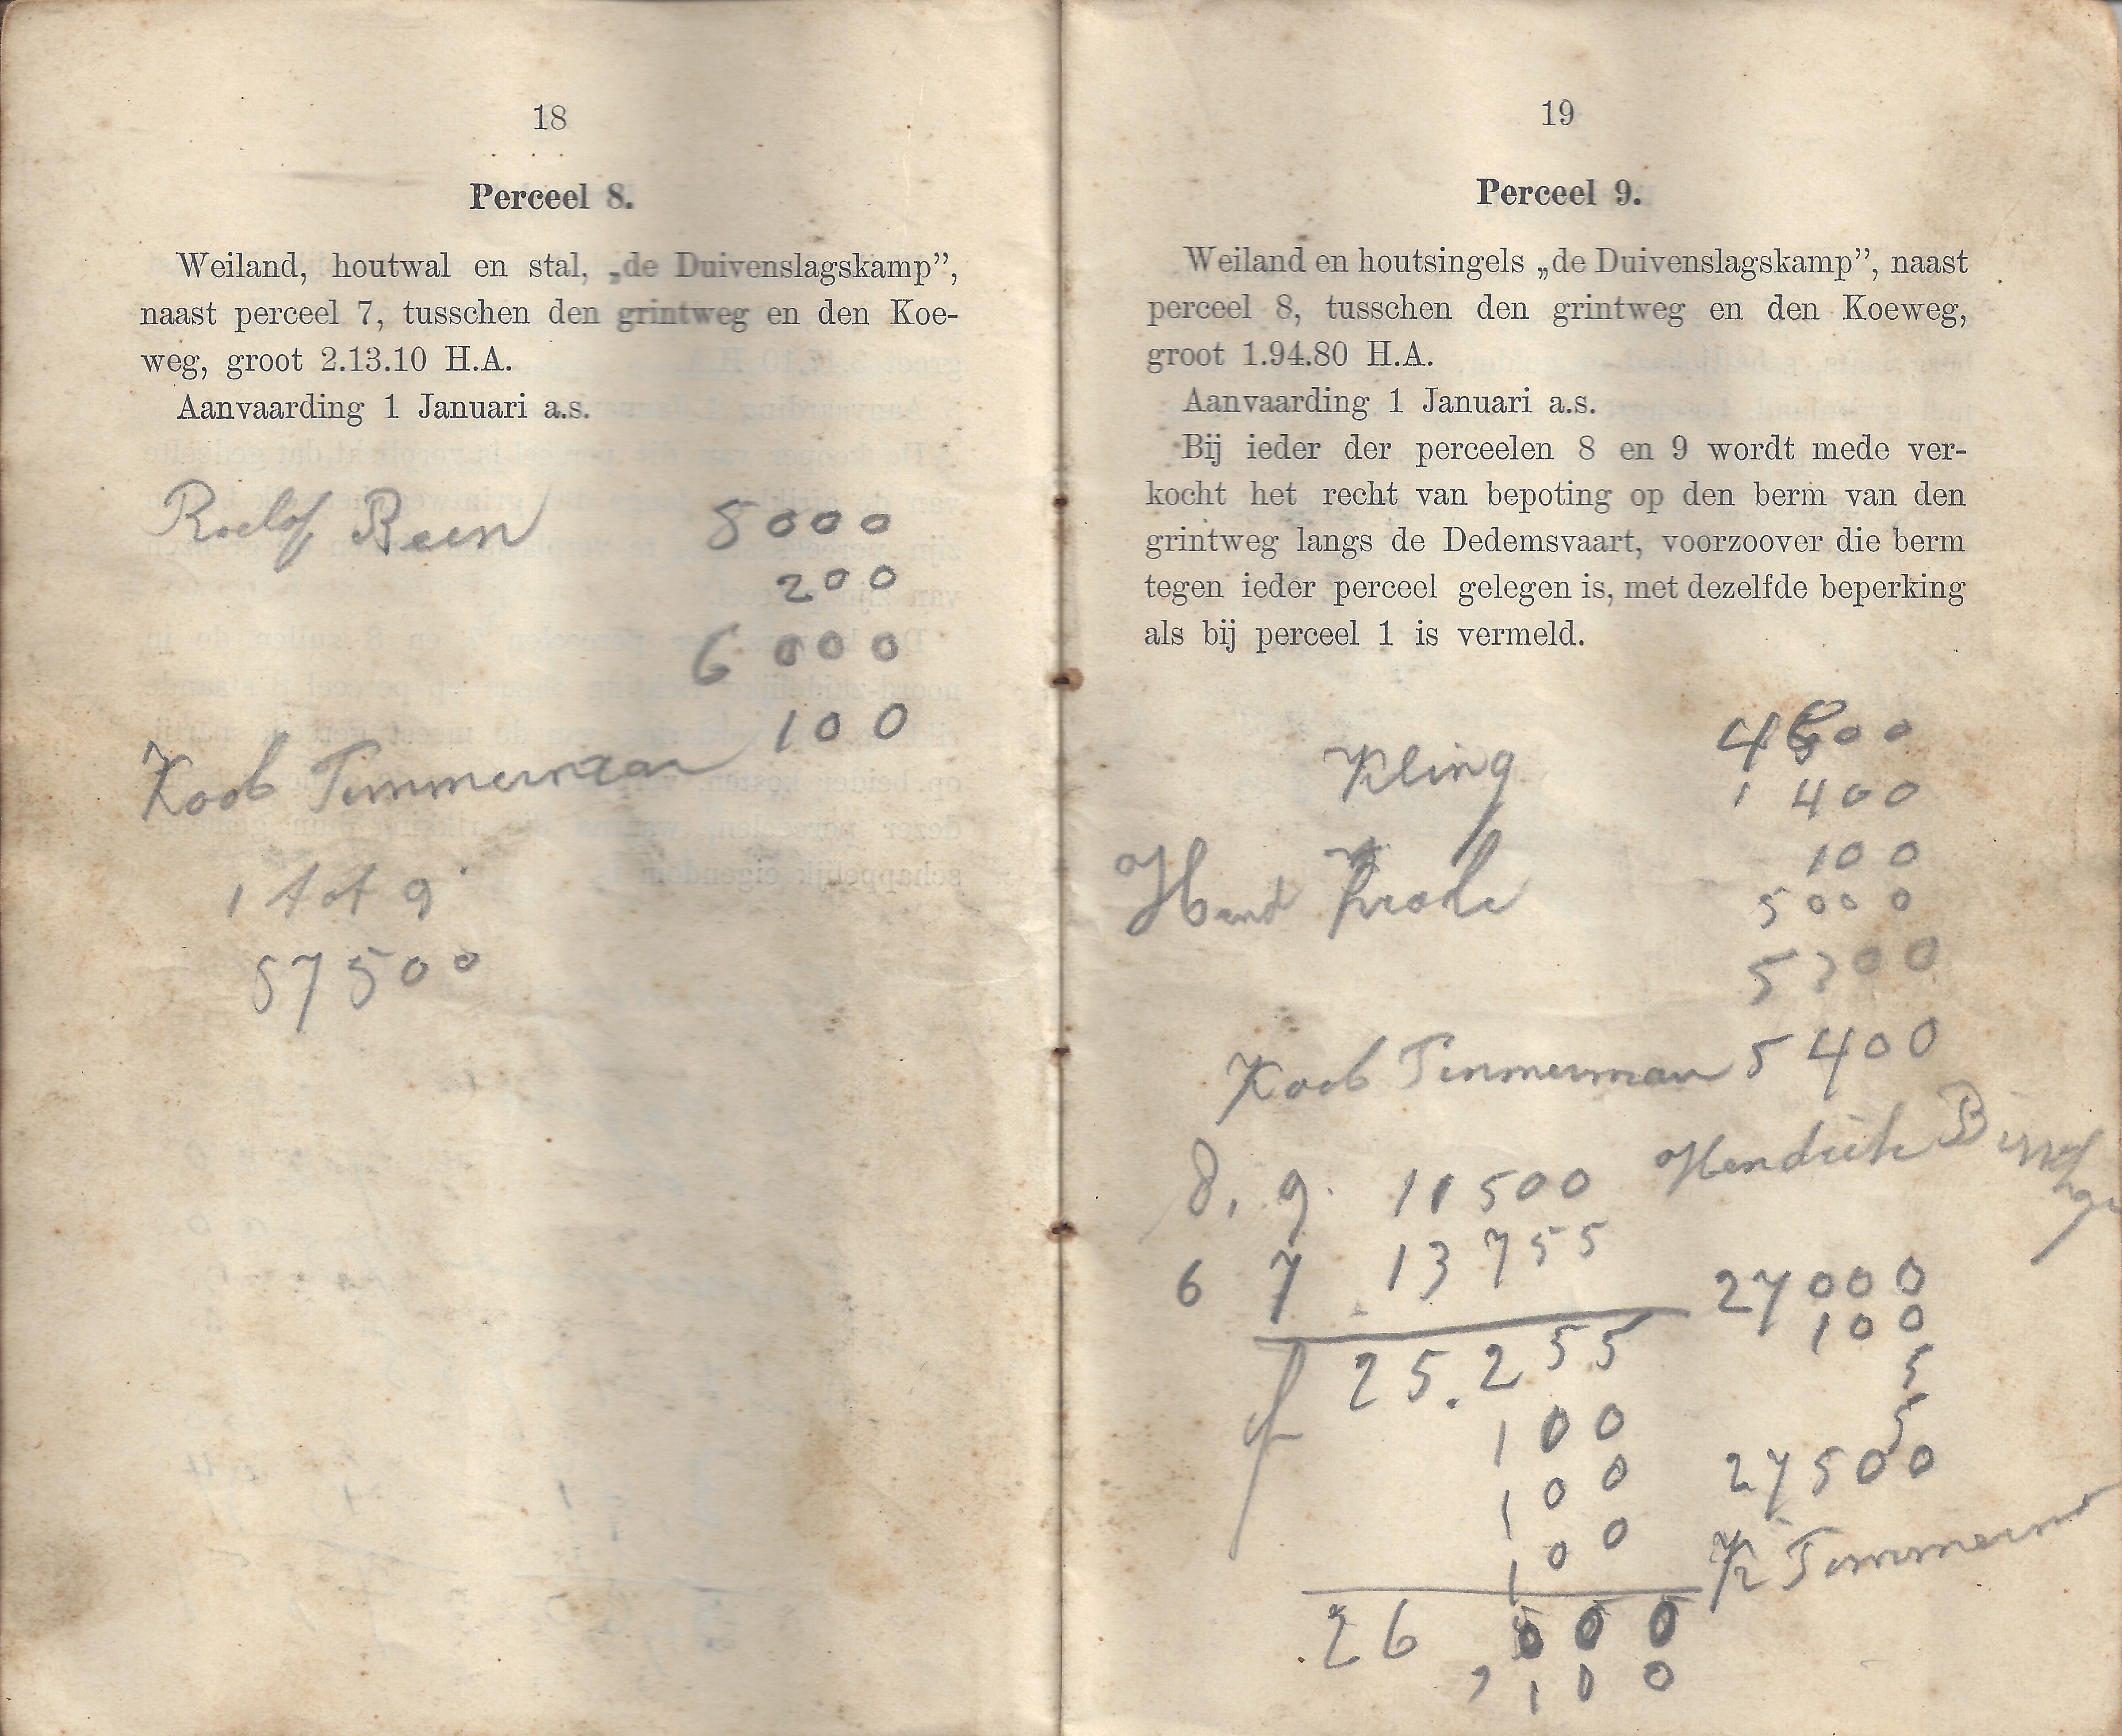 18
Perceel 8.
Weiland, houtwal en stal, „de Duivenslagskamp”,
naast perceel 7, tusschen den grintweg en den Koe-
weg, groot 2.13.10 H.A.
Aanvaarding 1 Januari a.s.
Roelof Been 5000
200
6000
100
Koob Timmerman
1 tot 9
57500
19
Perceel 9.
Weiland en houtsingels „de Duivenslagskamp”, naast
perceel 8, tusschen den grintweg en den Koeweg,
groot 1.94.80 H.A.
Aanvaarding 1 Januari a.s.
Bij ieder der perceelen 8 en 9 wordt mede ver-
kocht het recht van bepoting op den berm van den
grintweg langs de Dedemsvaart, voorzoover die berm
tegen ieder perceel gelegen is, met dezelfde beperking
als bij perceel 1 is vermeld.
Kling
1 400
100
Hend 5000
5200
Koob Timmerman 5400
8, 9. 11500 Hendrik
6 7 13755
27000
100
f 25.255
5
5
100
100
27500
100
K Timmerm
26,000
100